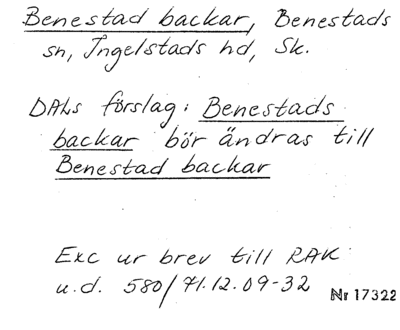 Benestad backar, Benestads
sn, Ingelstads hd, Sk.
DALs förslag: Benestads
backar bör ändras till
Benestad backar
Exc ur brev till RAK
u.d. 580/71.12.09-32
Nr 17322